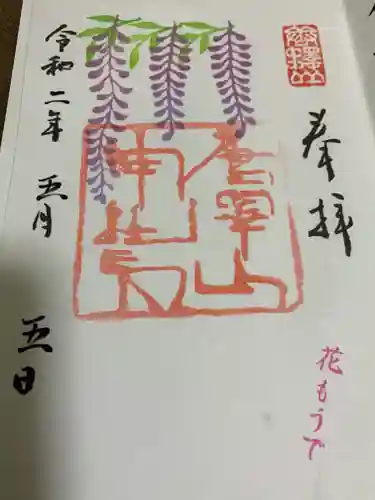 奉拝
花もうで
唐澤山
令和二年 五月
五日